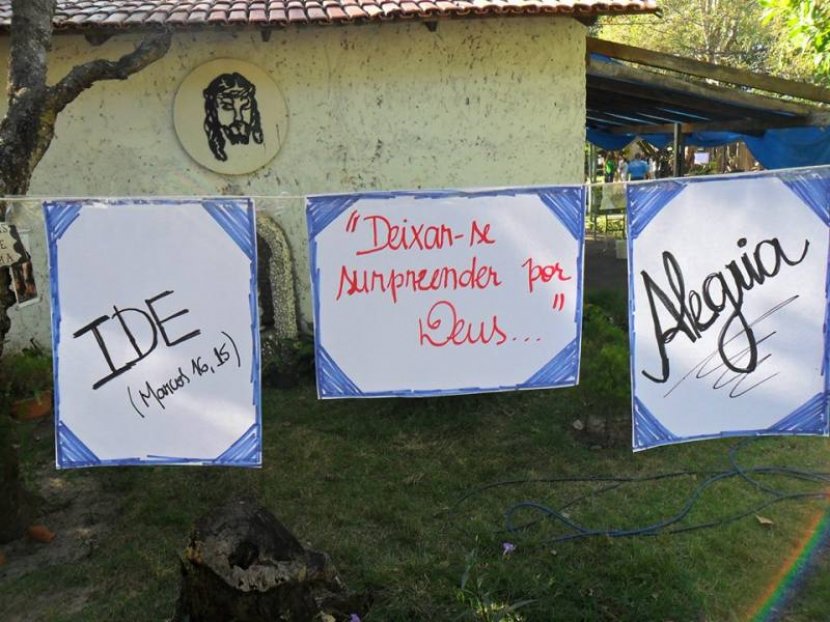 IDE
(Marcos 16, 15)
"Deixar-se
surpreender por
Deus..."
Alegria